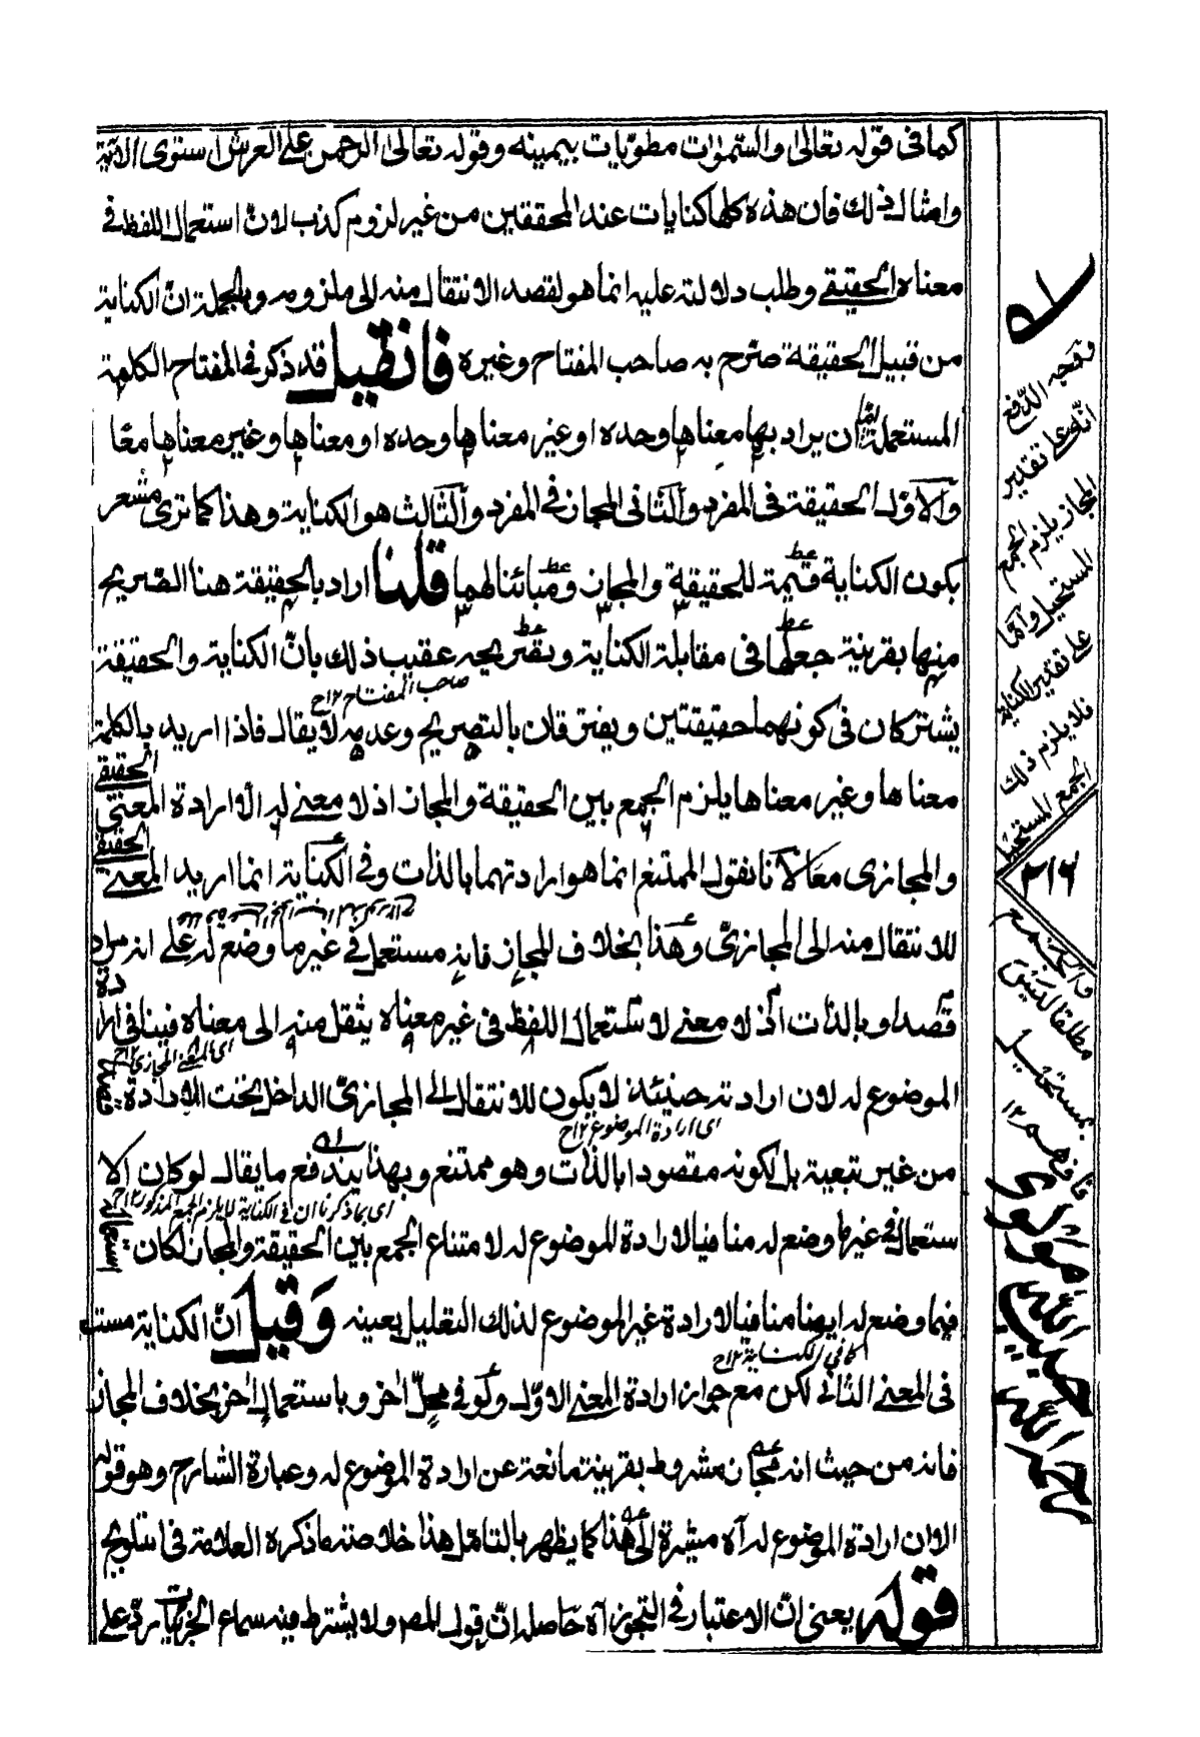 كما فى قوله تعالى والسموات مطويات بيمينه وقوله تعالى الرحمن على العرش استوى الآية
وامثال ذلك فان هذه كلها كنايات عند المحققين من غير لزوم كذب لان استعمال اللفظ فى
معناه الحقيقى وطلب دلالته عليه انما هو لقصد الانتقال منه الى ملزومه وبالجملة ان الكناية
من قبيل الحقيقة صرح به صاحب المفتاح وغيره فان قيل قد ذكر فى المفتاح الكلمة
المستعملة اما ان يراد بها معناها وحده او غير معناها وحده او معناها وغير معناها معًا
والاوّل الحقيقة فى المفرد والثانى المجاز فى المفرد والثالث هو الكناية وهذا كما ترى مشعر
بكون الكناية قسيمة للحقيقة والمجاز ومبائنا لهما قلنا اراد بالحقيقة هنا الصريح
منها بقرينة جعلها فى مقابلة الكناية وبتصريحه عقيب ذلك بانّ الكناية والحقيقة
صاحب المفتاح ١٢ ح
يشتركان فى كونهما حقيقتين ويفترقان بالتصريح وعدمه لا يقال فاذا اريد بالكلمة
معناها وغير معناها يلزم الجمع بين الحقيقة والمجاز اذ لا معنى له الا ارادة المعنى الحقيقى
والمجازى معا لانا نقول الممتنع انما هو ارادتهما بالذات وفى الكناية انما اريد المعنى الحقيقى
للانتقال منه الى المجازىّ وهذا بخلاف المجاز فانه مستعمل فى غير ما وضع له على انه مراد
قصدا وبالذات اذ لا معنى لاستعمال اللفظ فى غير معناه ينتقل منه الى معناه فينافى ارادة
اى المعنى المجازى ١٢ ح
الموضوع له لان ارادته حينئذ لا يكون للانتقال الى المجازىّ الداخل تحت الارادة قصدا
اى ارادة الموضوع ١٢ ح
من غير تبعية بل لكونه مقصودا بالذات وهو ممتنع وبهذا يندفع ما يقال لو كان الا
اى بما ذكرنا ان فى الكناية لا يلزم الجمع المذكور ١٢ ح
ستعمال فى غير ما وضع له منافيا لارادة الموضوع له لامتناع الجمع بين الحقيقة والمجاز لكان استعماله
فيما وضع له ايضا منافيا لارادة غير الموضوع لذلك التعليل بعينه وقيل انّ الكناية مست
كما فى الكناية ١٢ ح
فى المعنى الثانى لكن مع جواز ارادة المعنى الاوّل ولو فى محلّ اخر وباستعمال اخر بخلاف المجاز
فانه من حيث انه مجاز مشروط بقرينة مانعة عن ارادة الموضوع له وعبارة الشارح وهو قوله
الا ان ارادة الموضوع له آه مشيرة الى هذا كما يظهر بالتامل هذا خلاصة ما ذكره العلامة فى التلويح
قوله يعنى انّ الاعتبار فى التجوز آه حاصله انّ قول المص ولا يشترط فيه سماع الجزئيات ردّ على
ووجه الدفع
انه على تقدير
المجاز يلزم الجمع
المستحيل واما
على تقدير الكناية
فلا يلزم ذلك
الجمع المستحيل
٣١٦
والجمع
مطلقا ليس
بمستحيل
فافهم ١٢
مولوى
حبيب الله
احمد الله